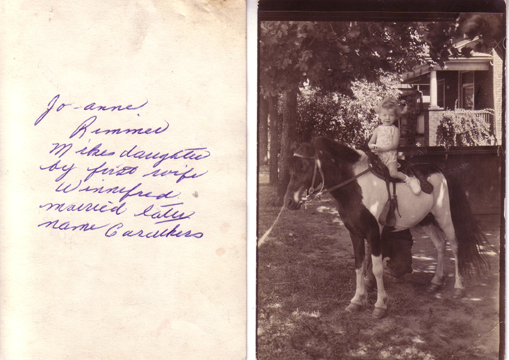 Jo-anne
Rimmer
Mikes daughter
by first wife
Winnefred
married later
name Caruthers